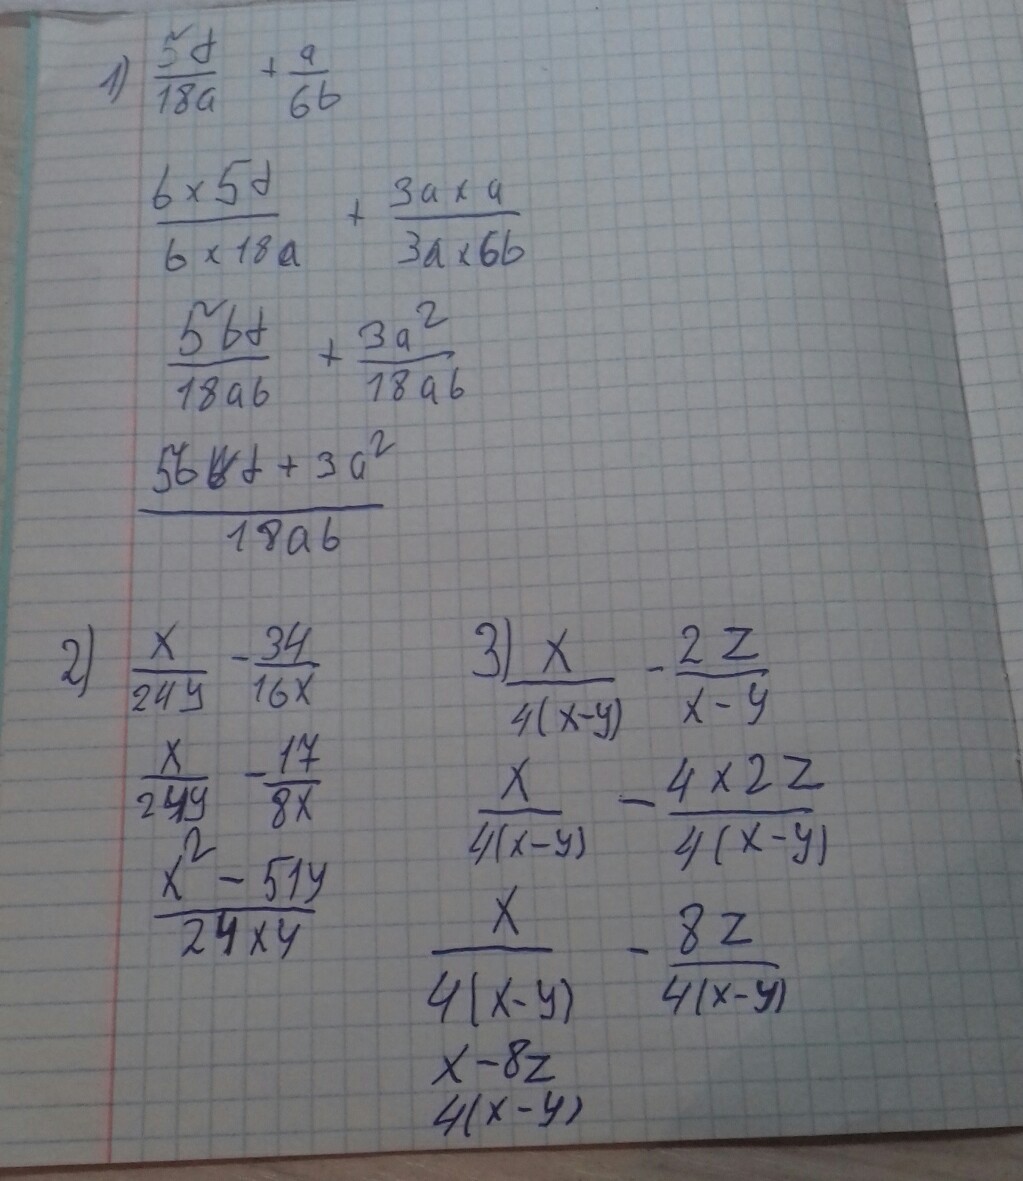 1) 5d/18a + a/6b
b x 5d/b x 18a + 3a x a/3a x 6b
5bd/18ab + 3a²/18ab
5bd + 3a²/18ab
2) x/24y - 34/16x
x/24y - 17/8x
x² - 51y/24xy
3) x/4(x-y) - 2z/x-y
x/4(x-y) - 4 x 2z/4(x-y)
x/4(x-y) - 8z/4(x-y)
x-8z
4(x-y)